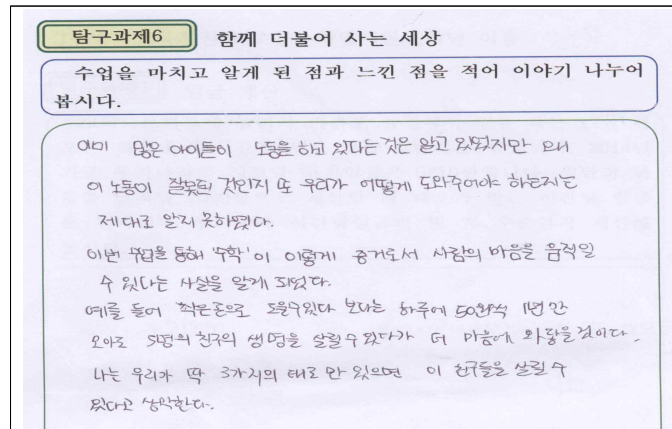 탐구과제6 함께 더불어 사는 세상
수업을 마치고 알게 된 점과 느낀 점을 적어 이야기 나누어
봅시다.
이미 많은 아이들이 노동을 하고 있다는 것은 알고 있었지만 왜
이 노동이 잘못된 것인지 또 우리가 어떻게 도와주어야 하는지는
제대로 알지 못하였다.
이번 수업을 통해 '수학'이 이렇게 증거로서 사람의 마음을 움직일
수 있다는 사실을 알게 되었다.
예를 들어 적은돈으로 도울수있다 보다는 하루에 50원씩 1년 간
모아도 5명의 친구의 생명을 살릴 수 있다가 더 마음에 와닿을것이다.
나는 우리가 딱 3가지의 태도만 있으면 이 친구들을 살릴 수
있다고 생각한다.